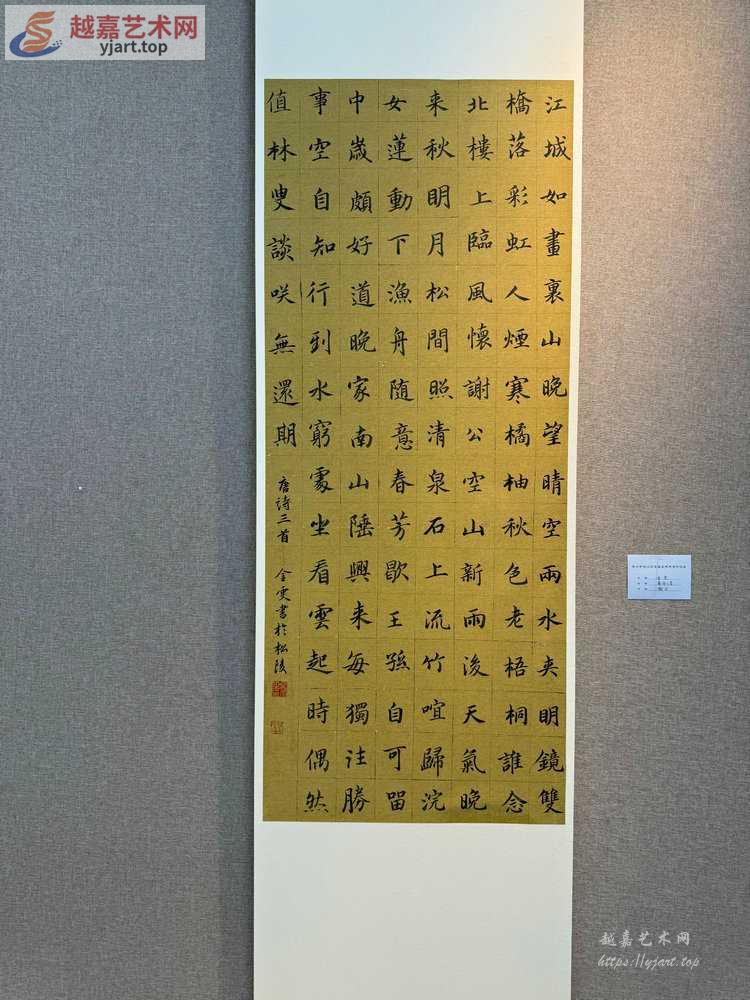 越嘉艺术网
yjart.top
江城如畫裏山晚望晴空兩水夾明鏡雙
橋落彩虹人煙寒橘柚秋色老梧桐誰念
北樓上臨風懷謝公空山新雨後天氣晚
来秋明月松間照清泉石上流竹喧歸浣
女蓮動下漁舟随意春芳歇王孫自可留
中歲頗好道晚家南山陲興来每獨往勝
事空自知行到水窮處坐看雲起時偶然
值林叟談咲無還期
唐詩三首 金雯書於松陵
越嘉艺术网
https://yjart.top